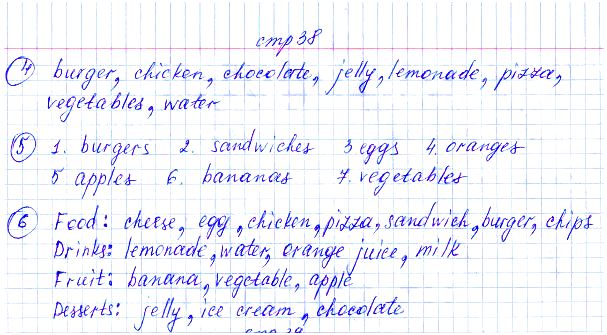 стр 38
4 burger, chicken, chocolate, jelly, lemonade, pizza,
vegetables, water
5 1. burgers 2. sandwiches 3 eggs 4. oranges
5 apples 6. bananas 7. vegetables
6 Food: cheese, egg, chicken, pizza, sandwich, burger, chips
Drinks: lemonade, water, orange juice, milk
Fruit: banana, vegetable, apple
Desserts: jelly, ice cream, chocolate
стр 39